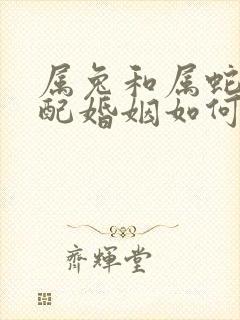 属兔和属蛇
配婚姻如何
齊輝堂